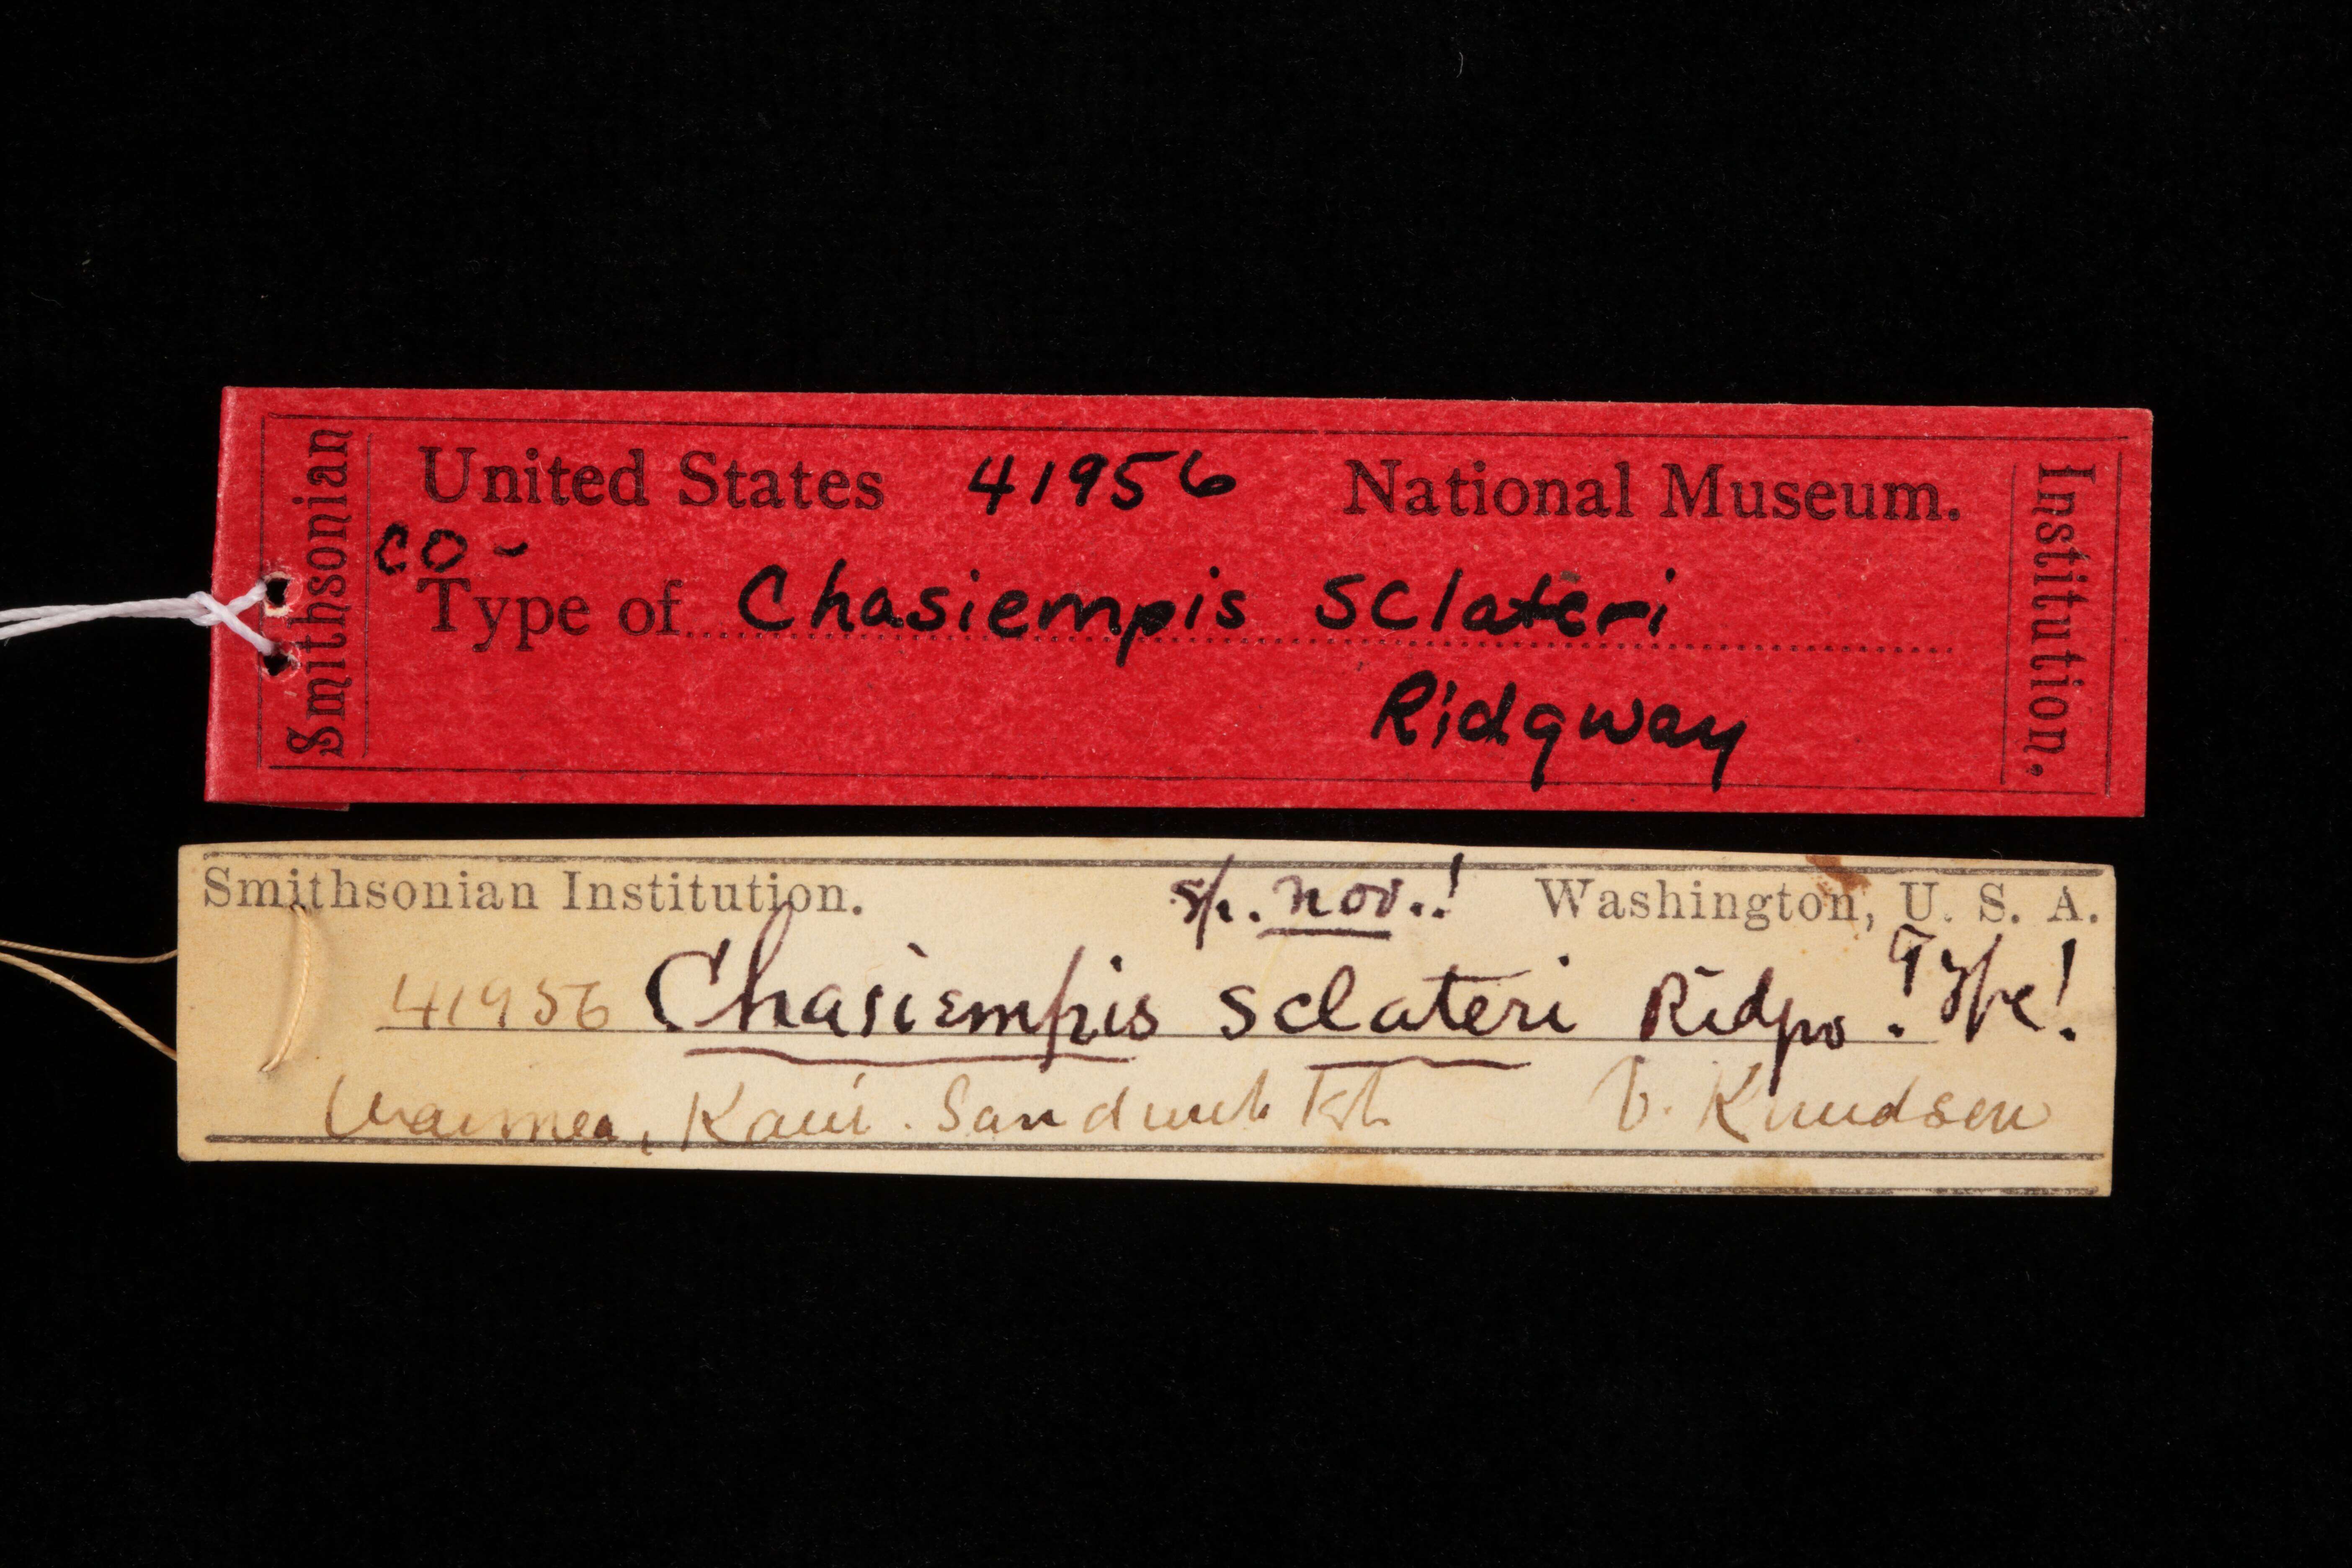 Smithsonian
United States 41956 National Museum.
co-
Type of Chasiempis sclateri
Ridgway
Institution.
Smithsonian Institution. sp. nov.! Washington, U. S. A.
41956 Chasiempis sclateri Ridgw. Type!
Waimea, Kaui. Sandwich Isl. V. Knudsen